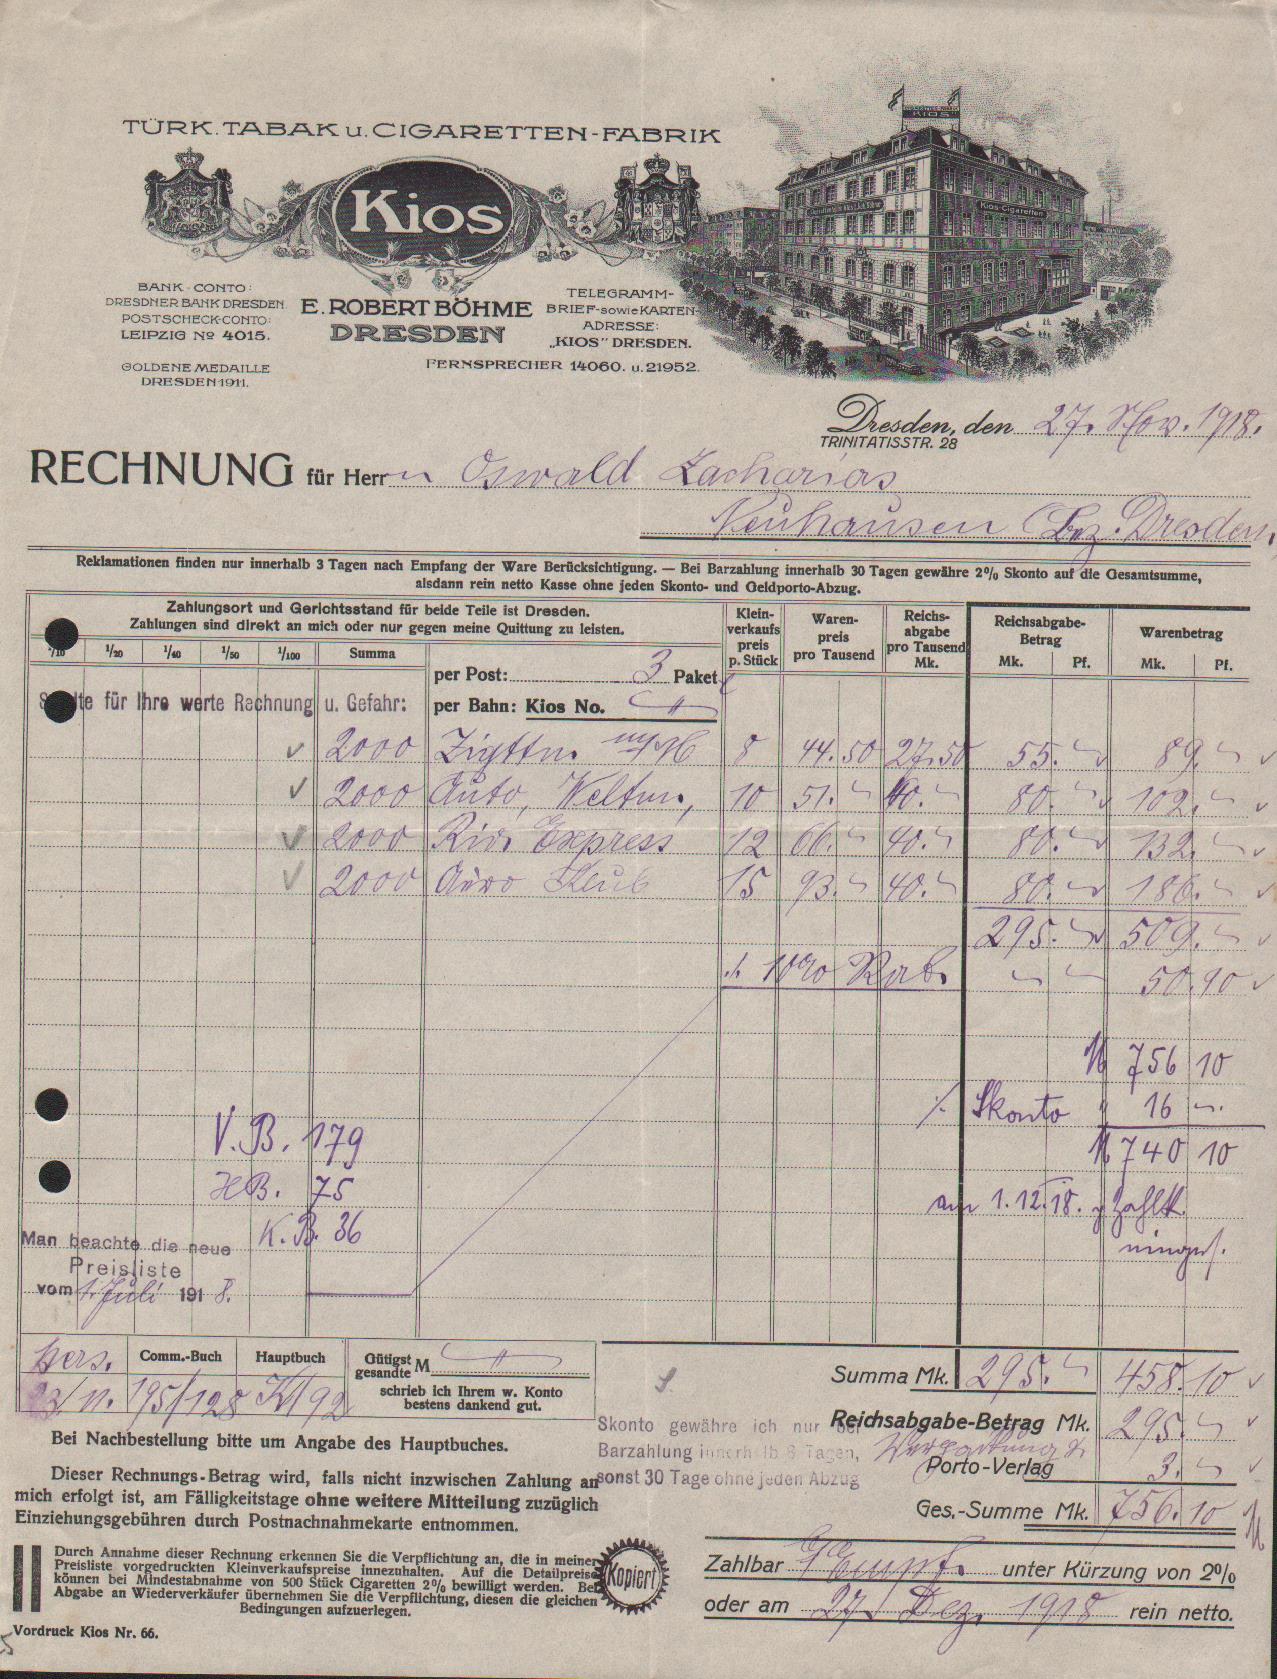 TÜRK. TABAK u. CIGARETTEN-FABRIK
Kios
KIOS
Kios-Cigaretten
BANK-CONTO:
DRESDNER BANK DRESDEN
POSTSCHECK-CONTO:
LEIPZIG No 4015.
GOLDENE MEDAILLE
DRESDEN 1911.
E. ROBERT BÖHME
DRESDEN
TELEGRAMM-
BRIEF-sowie KARTEN-
ADRESSE:
„KIOS" DRESDEN.
FERNSPRECHER 14060. u. 21952.
Dresden, den 27. Nov. 1918.
TRINITATISSTR. 28
RECHNUNG für Herrn Oswald Zacharias
Neuhausen (Bez. Dresden.
Reklamationen finden nur innerhalb 3 Tagen nach Empfang der Ware Berücksichtigung. — Bei Barzahlung innerhalb 30 Tagen gewähre 2% Skonto auf die Gesamtsumme,
alsdann rein netto Kasse ohne jeden Skonto- und Geldporto-Abzug.
Zahlungsort und Gerichtsstand für beide Teile ist Dresden.
Zahlungen sind direkt an mich oder nur gegen meine Quittung zu leisten.
1/10 1/20 1/40 1/50 1/100 Summa
Klein-verkaufspreis p. Stück
Waren-preis pro Tausend
Reichs-abgabe pro Tausend Mk.
Reichsabgabe-Betrag Mk. Pf.
Warenbetrag Mk. Pf.
per Post: 3 Paket
für Ihre werte Rechnung u. Gefahr: per Bahn: Kios No.
2000 8 44.50 27.50 55.– 89.–
2000 Auto, 10 51.– 40.– 80.– 102.–
2000 Express 12 66.– 40.– 80.– 132.–
2000 15 93.– 40.– 80.– 186.–
295.– 509.–
./. 10% Rab. – – 50.90
M 756 10
% Skonto " 16 –.
M 740 10
V.B. 179
HB. 75
K.B. 36
am 1.12.18.
Man beachte die neue
Preisliste
vom 1. Juli 1918.
Comm.-Buch Hauptbuch
23/11. 195/128
Gütigst gesandte M
schrieb ich Ihrem w. Konto
bestens dankend gut.
Summa Mk. 295.– 458.10
Reichsabgabe-Betrag Mk. 295.–
Porto-Verlag 3.–
Ges.-Summe Mk. 756.10
Skonto gewähre ich nur bei
Barzahlung innerhalb 8 Tagen,
sonst 30 Tage ohne jeden Abzug
Bei Nachbestellung bitte um Angabe des Hauptbuches.
Dieser Rechnungs-Betrag wird, falls nicht inzwischen Zahlung an
mich erfolgt ist, am Fälligkeitstage ohne weitere Mitteilung zuzüglich
Einziehungsgebühren durch Postnachnahmekarte entnommen.
Durch Annahme dieser Rechnung erkennen Sie die Verpflichtung an, die in meiner
Preisliste vorgedruckten Kleinverkaufspreise innezuhalten. Auf die Detailpreise
können bei Mindestabnahme von 500 Stück Cigaretten 2% bewilligt werden. Bei
Abgabe an Wiederverkäufer übernehmen Sie die Verpflichtung, diesen die gleichen
Bedingungen aufzuerlegen.
Kopiert
Zahlbar unter Kürzung von 2%
oder am 27. Dez. 1918 rein netto.
Vordruck Kios Nr. 66.